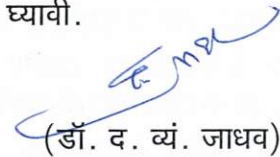 घ्यावी.
(डॉ. द. व्यं. जाधव)